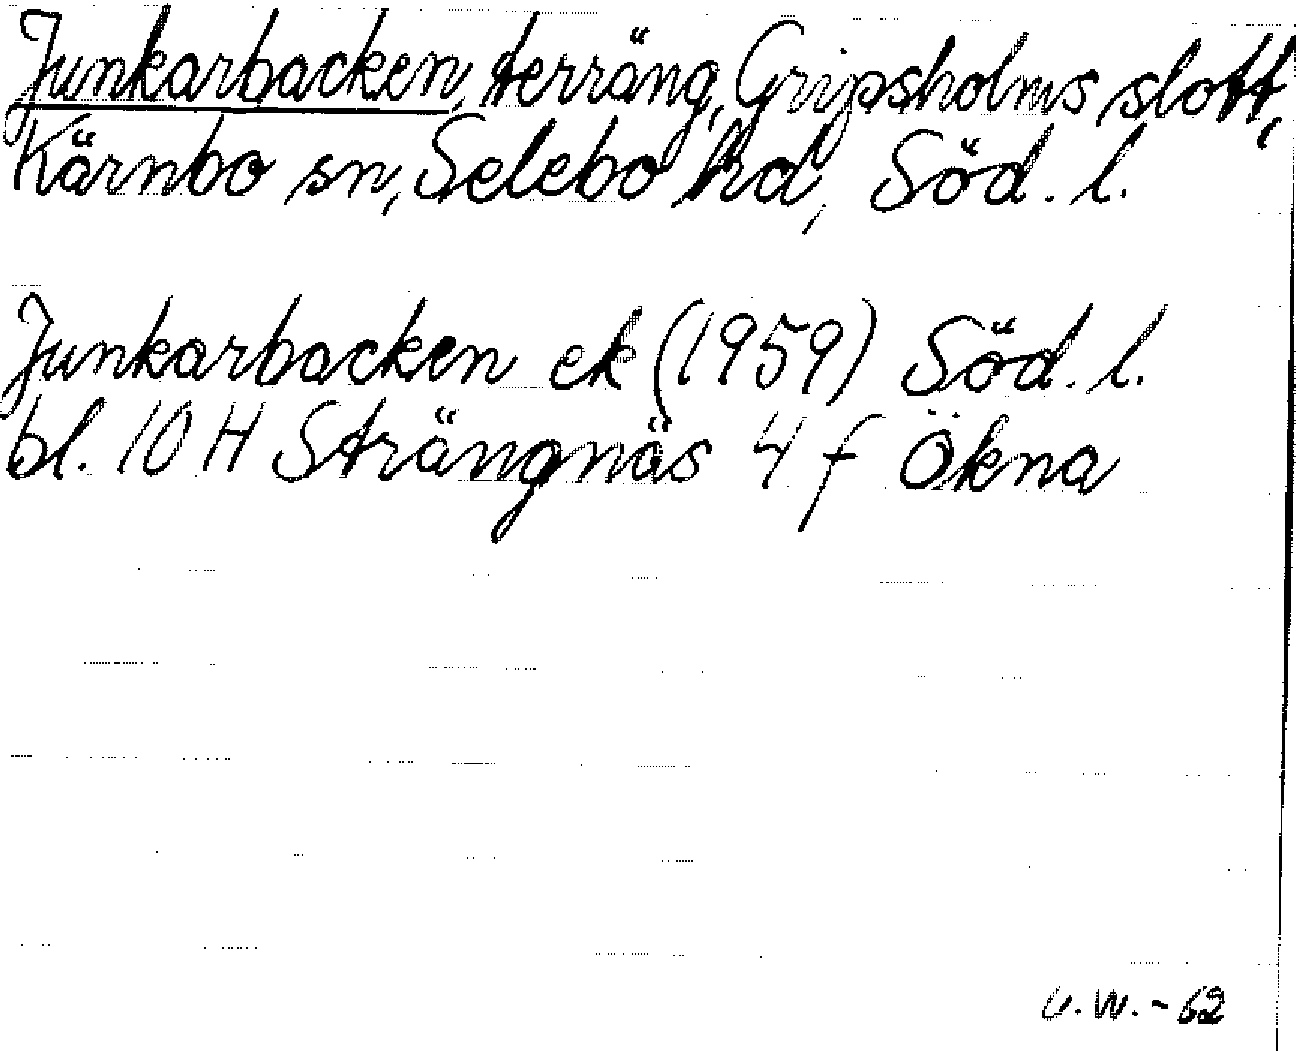 Junkarbacken, terräng, Gripsholms slott,
Kärnbo sn, Selebo hd, Söd. l.
Junkarbacken ek (1959) Söd. l.
bl. 10 H Strängnäs 4 f Ökna
U.W. - 62